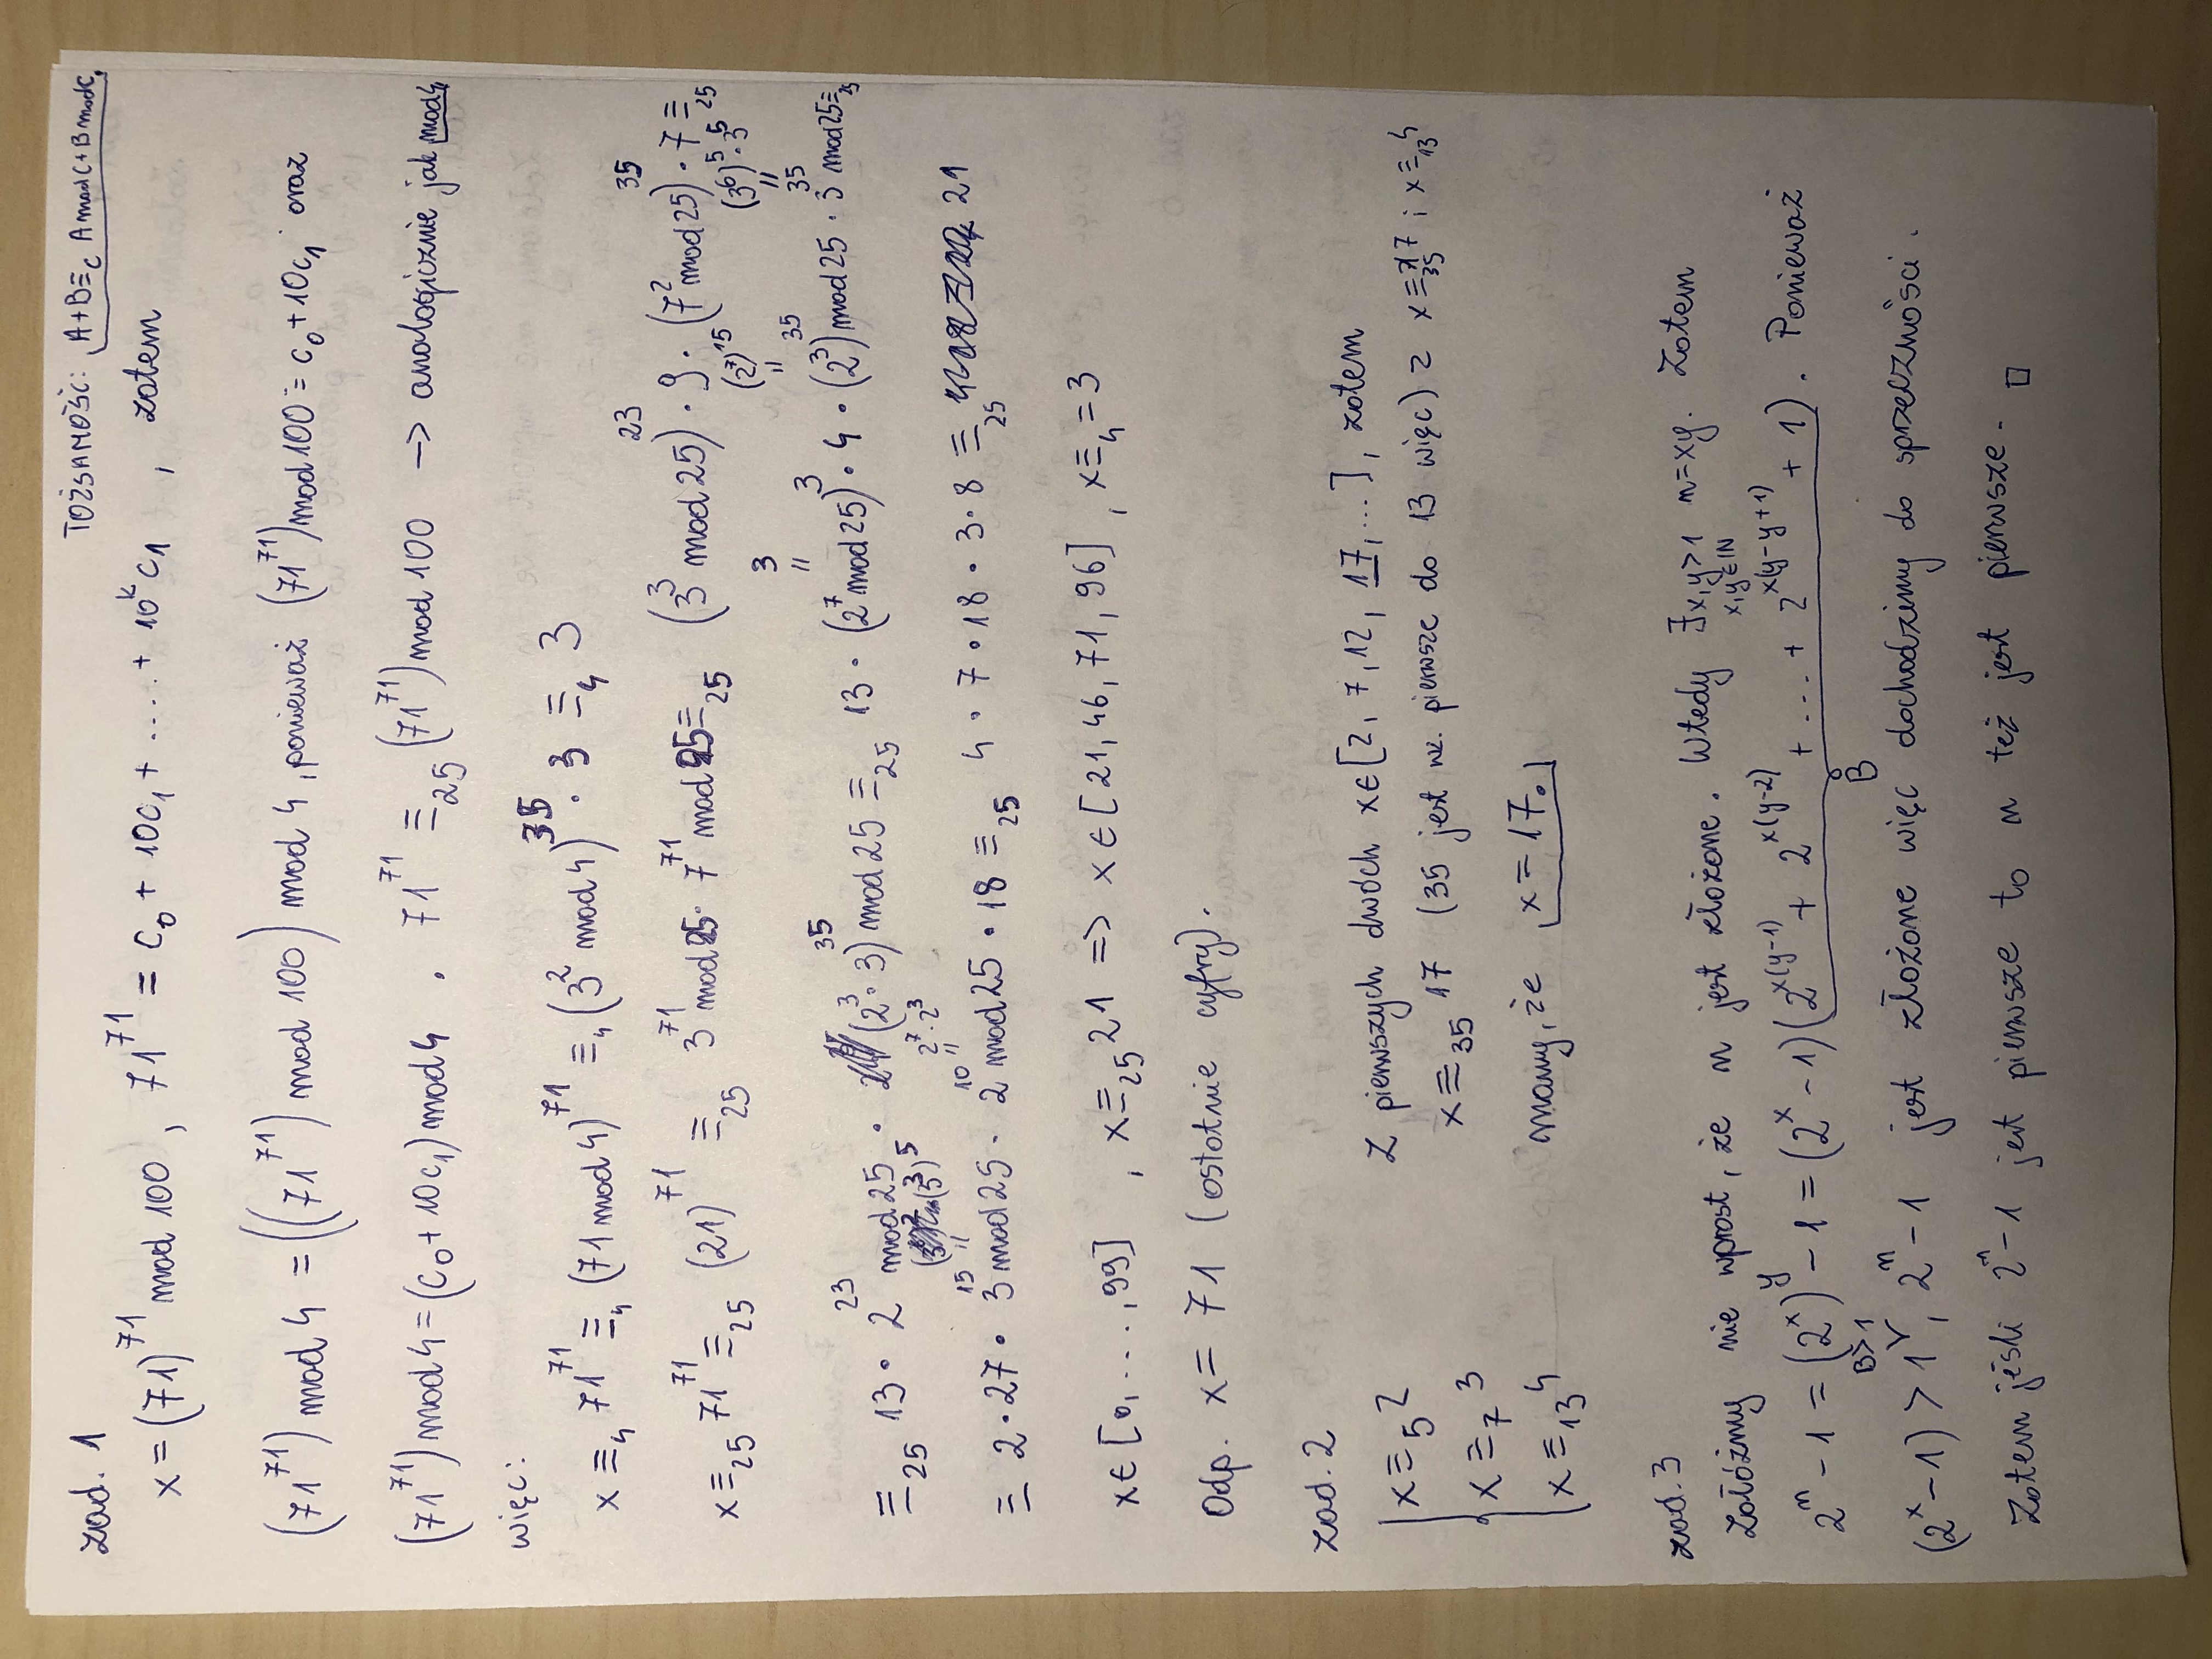 zad. 1
TOŻSAMOŚĆ: A+B≡_C A mod C + B mod C.
x = (71)^71 mod 100 , 71^71 = c_0 + 10c_1 + .... + 10^k c_1 , zatem
(71^71) mod 4 = ((71^71) mod 100) mod 4 , ponieważ (71^71) mod 100 = c_0 + 10c_1 oraz
(71^71) mod 4 = (c_0 + 10c_1) mod 4 . 71^71 ≡_25 (71^71) mod 100 → analogicznie jak mod 4
więc:
x ≡_4 71^71 ≡_4 (71 mod 4)^71 ≡_4 (3^2 mod 4)^35 · 3 ≡_4 3
x ≡_25 71^71 ≡_25 (21)^71 ≡_25 3^71 mod 25 · 7^71 mod 25 ≡_25 (3^3 mod 25)^23 · 9 · (7^2 mod 25)^35 · 7 ≡_25
3 = (2^7)^15 = (3^6)^5 · 3^5 =
≡_25 13 · 2^23 mod 25 · (2^3 · 3)^35 mod 25 ≡_25 13 · (2^7 mod 25)^3 · 4 · (2^3)^35 mod 25 · 3^35 mod 25 ≡_25
(3^3)^5 = 2^7 · 2^3 =
≡ 2 · 27 · 3^15 mod 25 · 2^10 mod 25 · 18 ≡_25 4 · 7 · 18 · 3 · 8 ≡_25 21
x ∈ [0, ...., 99] , x ≡_25 21 => x ∈ [21, 46, 71, 96] , x ≡_4 = 3
Odp. x = 71 (ostatnie cyfry).
zad. 2
x ≡_5 2
x ≡_7 3
x ≡_13 4
Z pierwszych dwóch x ∈ [2, 7, 12, 17, ...], zatem
x ≡_35 17 (35 jest wz. pierwsze do 13 więc) z x ≡_35 17 i x ≡_13 4
mamy, że x = 17.
zad. 3
Załóżmy nie wprost, że n jest złożone. Wtedy ∃ x,y>1 x,y∈ℕ n=xy. Zatem
2^n - 1 = (2^x)^y - 1 = (2^x - 1)(2^x(y-1) + 2^x(y-2) + ... + 2^x(y-y+1) + 1). Ponieważ
B
(2^x - 1) > 1 B>1, 2^n - 1 jest złożone więc dochodzimy do sprzeczności.
Zatem jeśli 2^n - 1 jest pierwsze to n też jest pierwsze. □